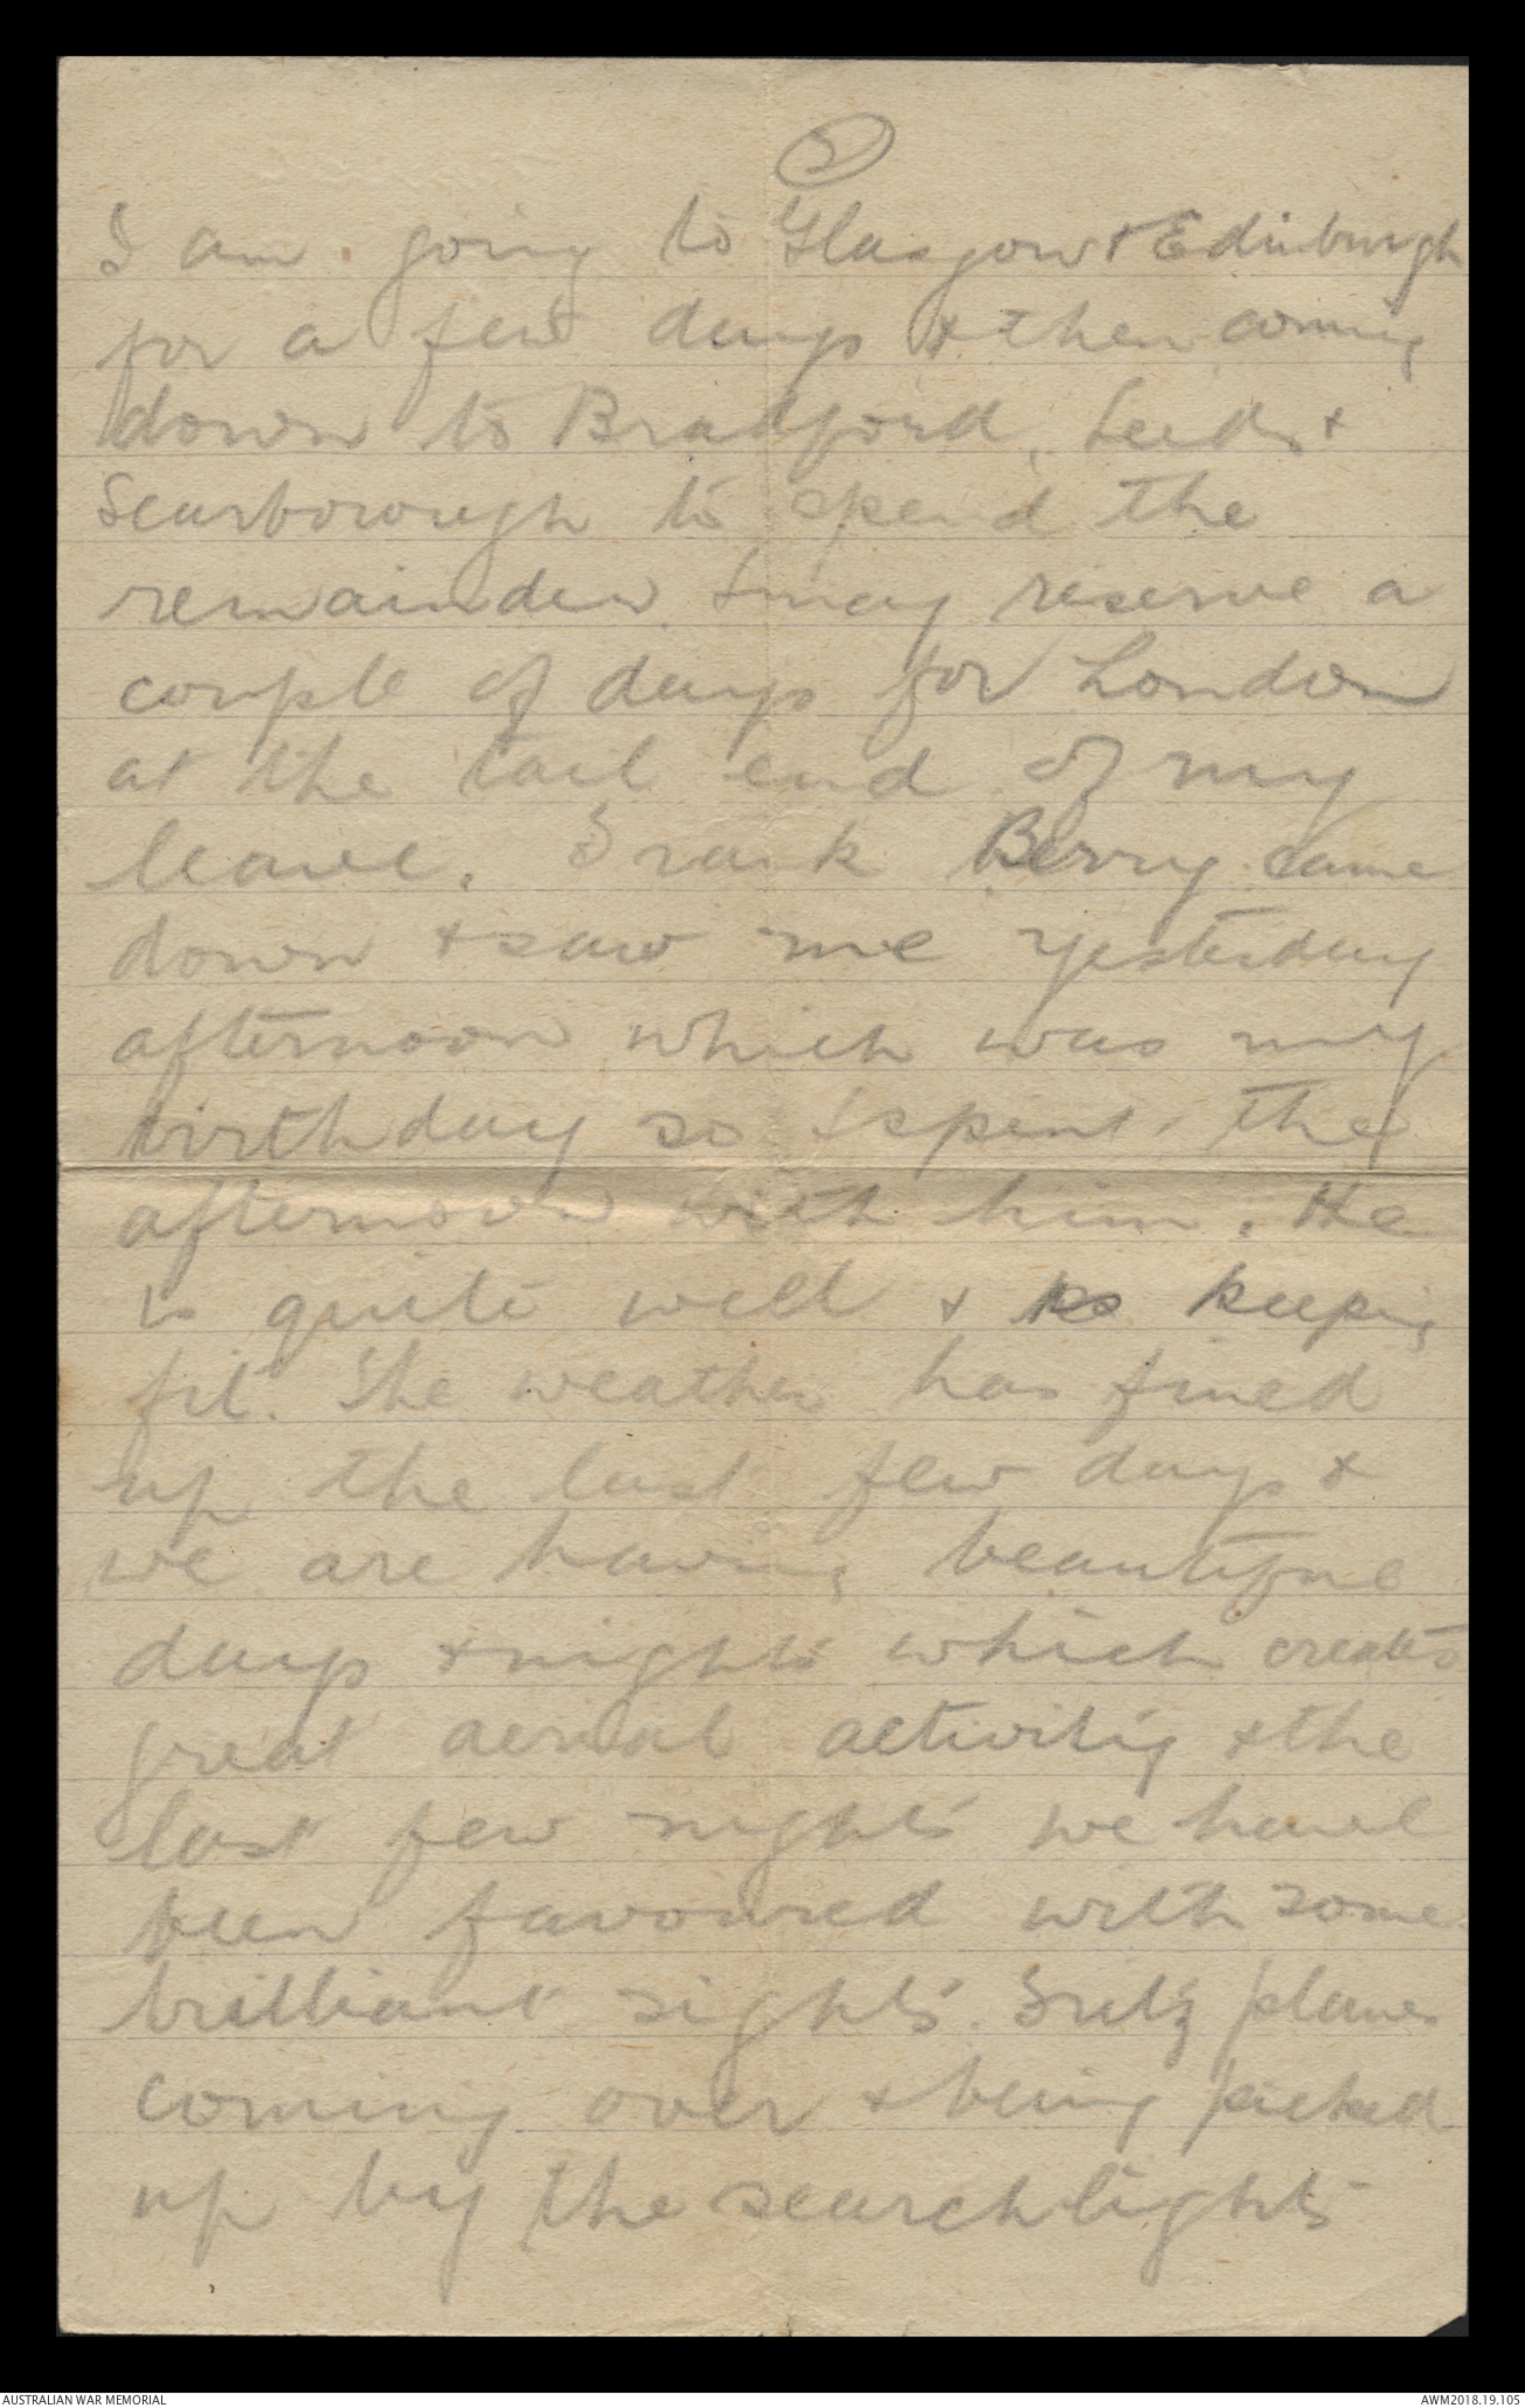 5
I am going to Glasgow & Edinburgh
for a few days & then coming
down to Bradford, Leeds &
Scarborough to spend the
remainder & may reserve a
couple of days for London
at the tail end of my
leave. Frank Berry came
down & saw me yesterday
afternoon which was my
birthday so I spent the
afternoon with him. He
is quite well & is keeping
fit. The weather has fined
up the last few days &
we are having beautiful
days & nights which creates
great aerial activity & the
last few nights we have
been favoured with some
brilliant sights. Fritz planes
coming over & being picked
up by the searchlights
AUSTRALIAN WAR MEMORIAL
AWM2018.19.105